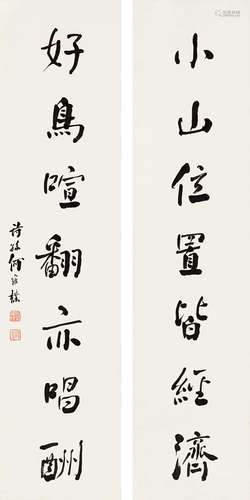 小山位置皆經濟
好鳥喧翻亦唱酬